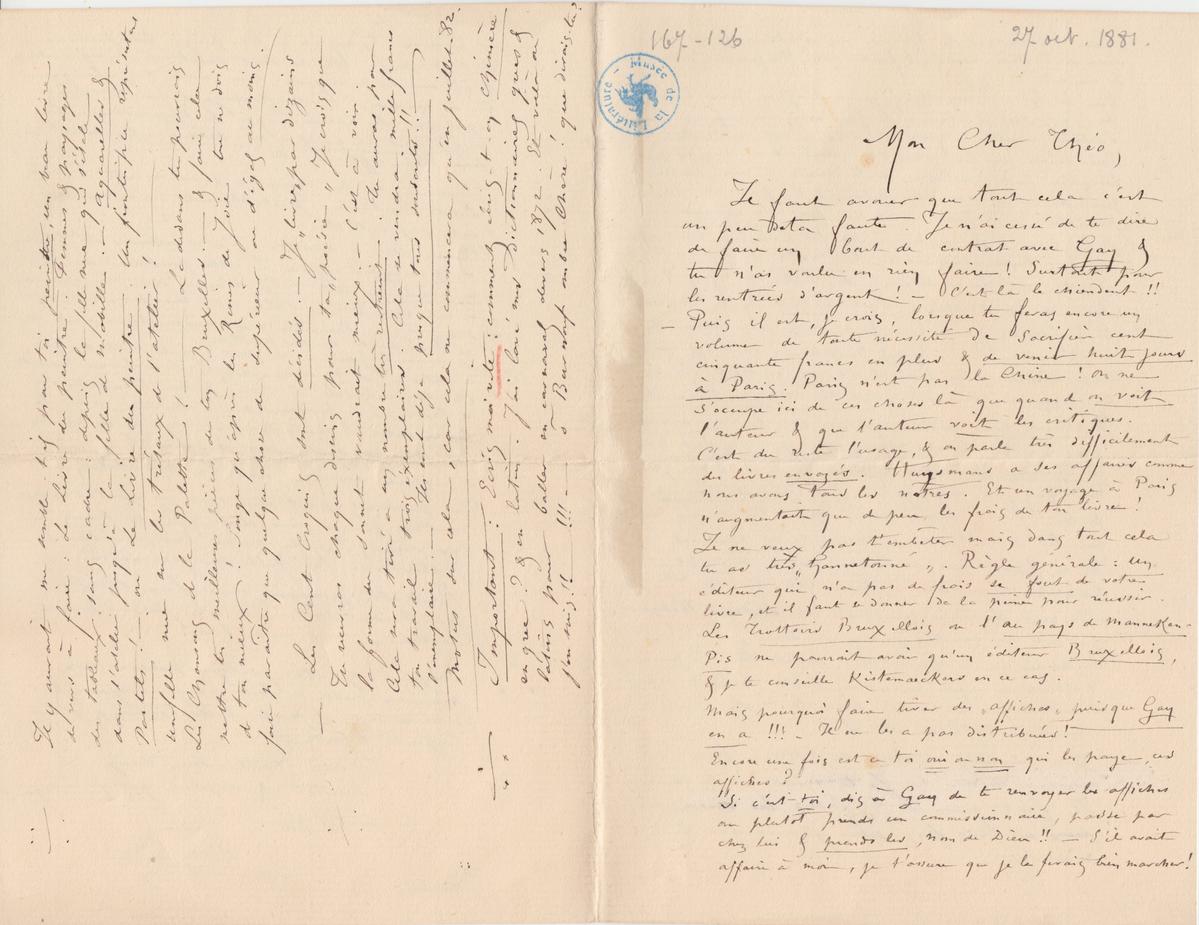 167-126
27 oct. 1881.
Musée de la Littérature
Mon Cher Théo,
Il faut avouer que tout cela c'est
un peu de ta faute. Je n'ai cessé de te dire
de faire un bout de contrat avec Gay &
tu n'as voulu en rien faire ! Surtout pour
les rentrées d'argent ! — C'est là le chiendent !!
— Puis il est, je crois, lorsque tu feras encore un
volume de toute nécessité de sacrifier cent
cinquante francs en plus & de venir huit jours
à Paris. Paris n'est pas la Chine ! On ne
s'occupe ici de ces choses là que quand on voit
l'auteur & que l'auteur voit les critiques.
C'est du reste l'usage, & on parle très difficilement
des livres envoyés. Huysmans a ses affaires comme
nous avons tous les nôtres. Et un voyage à Paris
n'augmentait que de peu les frais de ton livre !
Je ne veux pas t'embêter mais dans tout cela
tu as très „hannetonné„. Règle générale : un
éditeur qui n'a pas de frais se fout de votre
livre, et il faut se donner de la peine pour réussir.
Les Trottoirs Bruxellois ou l'au pays de Manneken-
Pis ne pourrait avoir qu'un éditeur Bruxellois,
& je te conseille Kistemaeckers en ce cas.
Mais pourquoi faire tirer des „affiches„ puisque Gay
en a !!! — Il ne les a pas distribuées !
Encore une fois est ce toi oui ou non qui les paye, ces
affiches ?
Si c'est toi, dis à Gay de te renvoyer les affiches
ou plutôt prends un commissionnaire, passe par
chez lui & prends les, nom de Dieu !! — S'il avait
affaire à moi, je t'assure que je le ferais bien marcher !
Il y aurait me semble t-il pour toi peintre, un beau livre
de vers à faire : Le Livre du peintre. Femmes & paysages
des tableaux sans cadre : depuis la femme qui s'étale
dans l'atelier jusqu'à la fille à modèles. — Aquarelles &
Pastels ! ou Le Livre du peintre. Un frontispice représentant
une fille nue sur les tréteaux de l'atelier !
Les Chansons de la Palette ! Là dedans tu pourrais
mettre tes meilleures pièces de tes Bruxelles. — & faire cela
de ton mieux ! Songe qu'après les Rimes de Joie tu ne dois
faire paraître que quelque chose de supérieur ou d'égal au moins.
— Les Cent Croquis sont décidés. — Je „livre„ par dizains
Tu recevras chaque dessin pour ta „poésie„ Je crois que
la forme du sonnet vaudrait mieux. — C'est à voir.
Cela sera tiré à un nombre très restreint. Tu auras pour
ton travail trois exemplaires. Cela se vendra mille francs
l'exemplaire. — Ils sont déjà presque tous souscrits !!
Motus sur cela, car cela ne commencera qu'en juillet 82.
Important : Ecris moi vite : comment écrit-on Chimère
en grec ? & en latin. J'ai loué mes dictionnaires grecs &
latins pour ballet en carnaval devers 1872. Et voilà où
j'en suis !! !!! — ô Burnouf ombre chère ! que dirais-tu ?